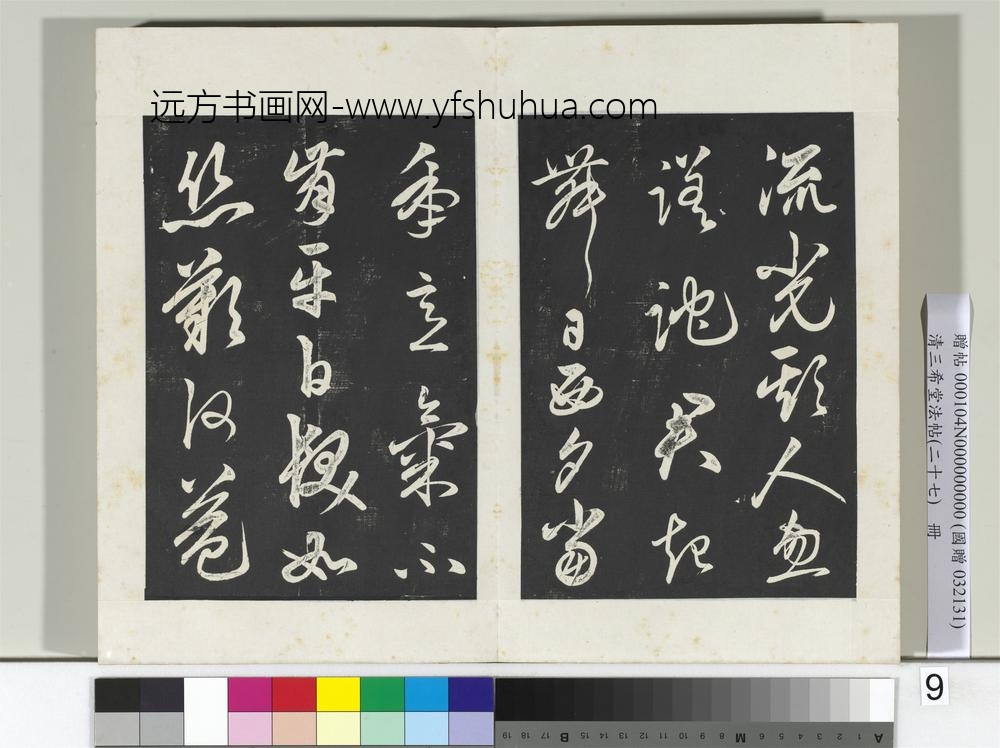 远方书画网-www.yfshuhua.com
流光欺人忽
蹉跎君起
舞日西夕當
年意氣不
肯平白髮如
絲歎何益
贈帖 000104N000000000 (國贈 032131)
清三希堂法帖(二十七) 冊
9
A 1 2 3 4 5 6 7 8 9 10 M 11 12 13 14 15 B 16 17 18 19